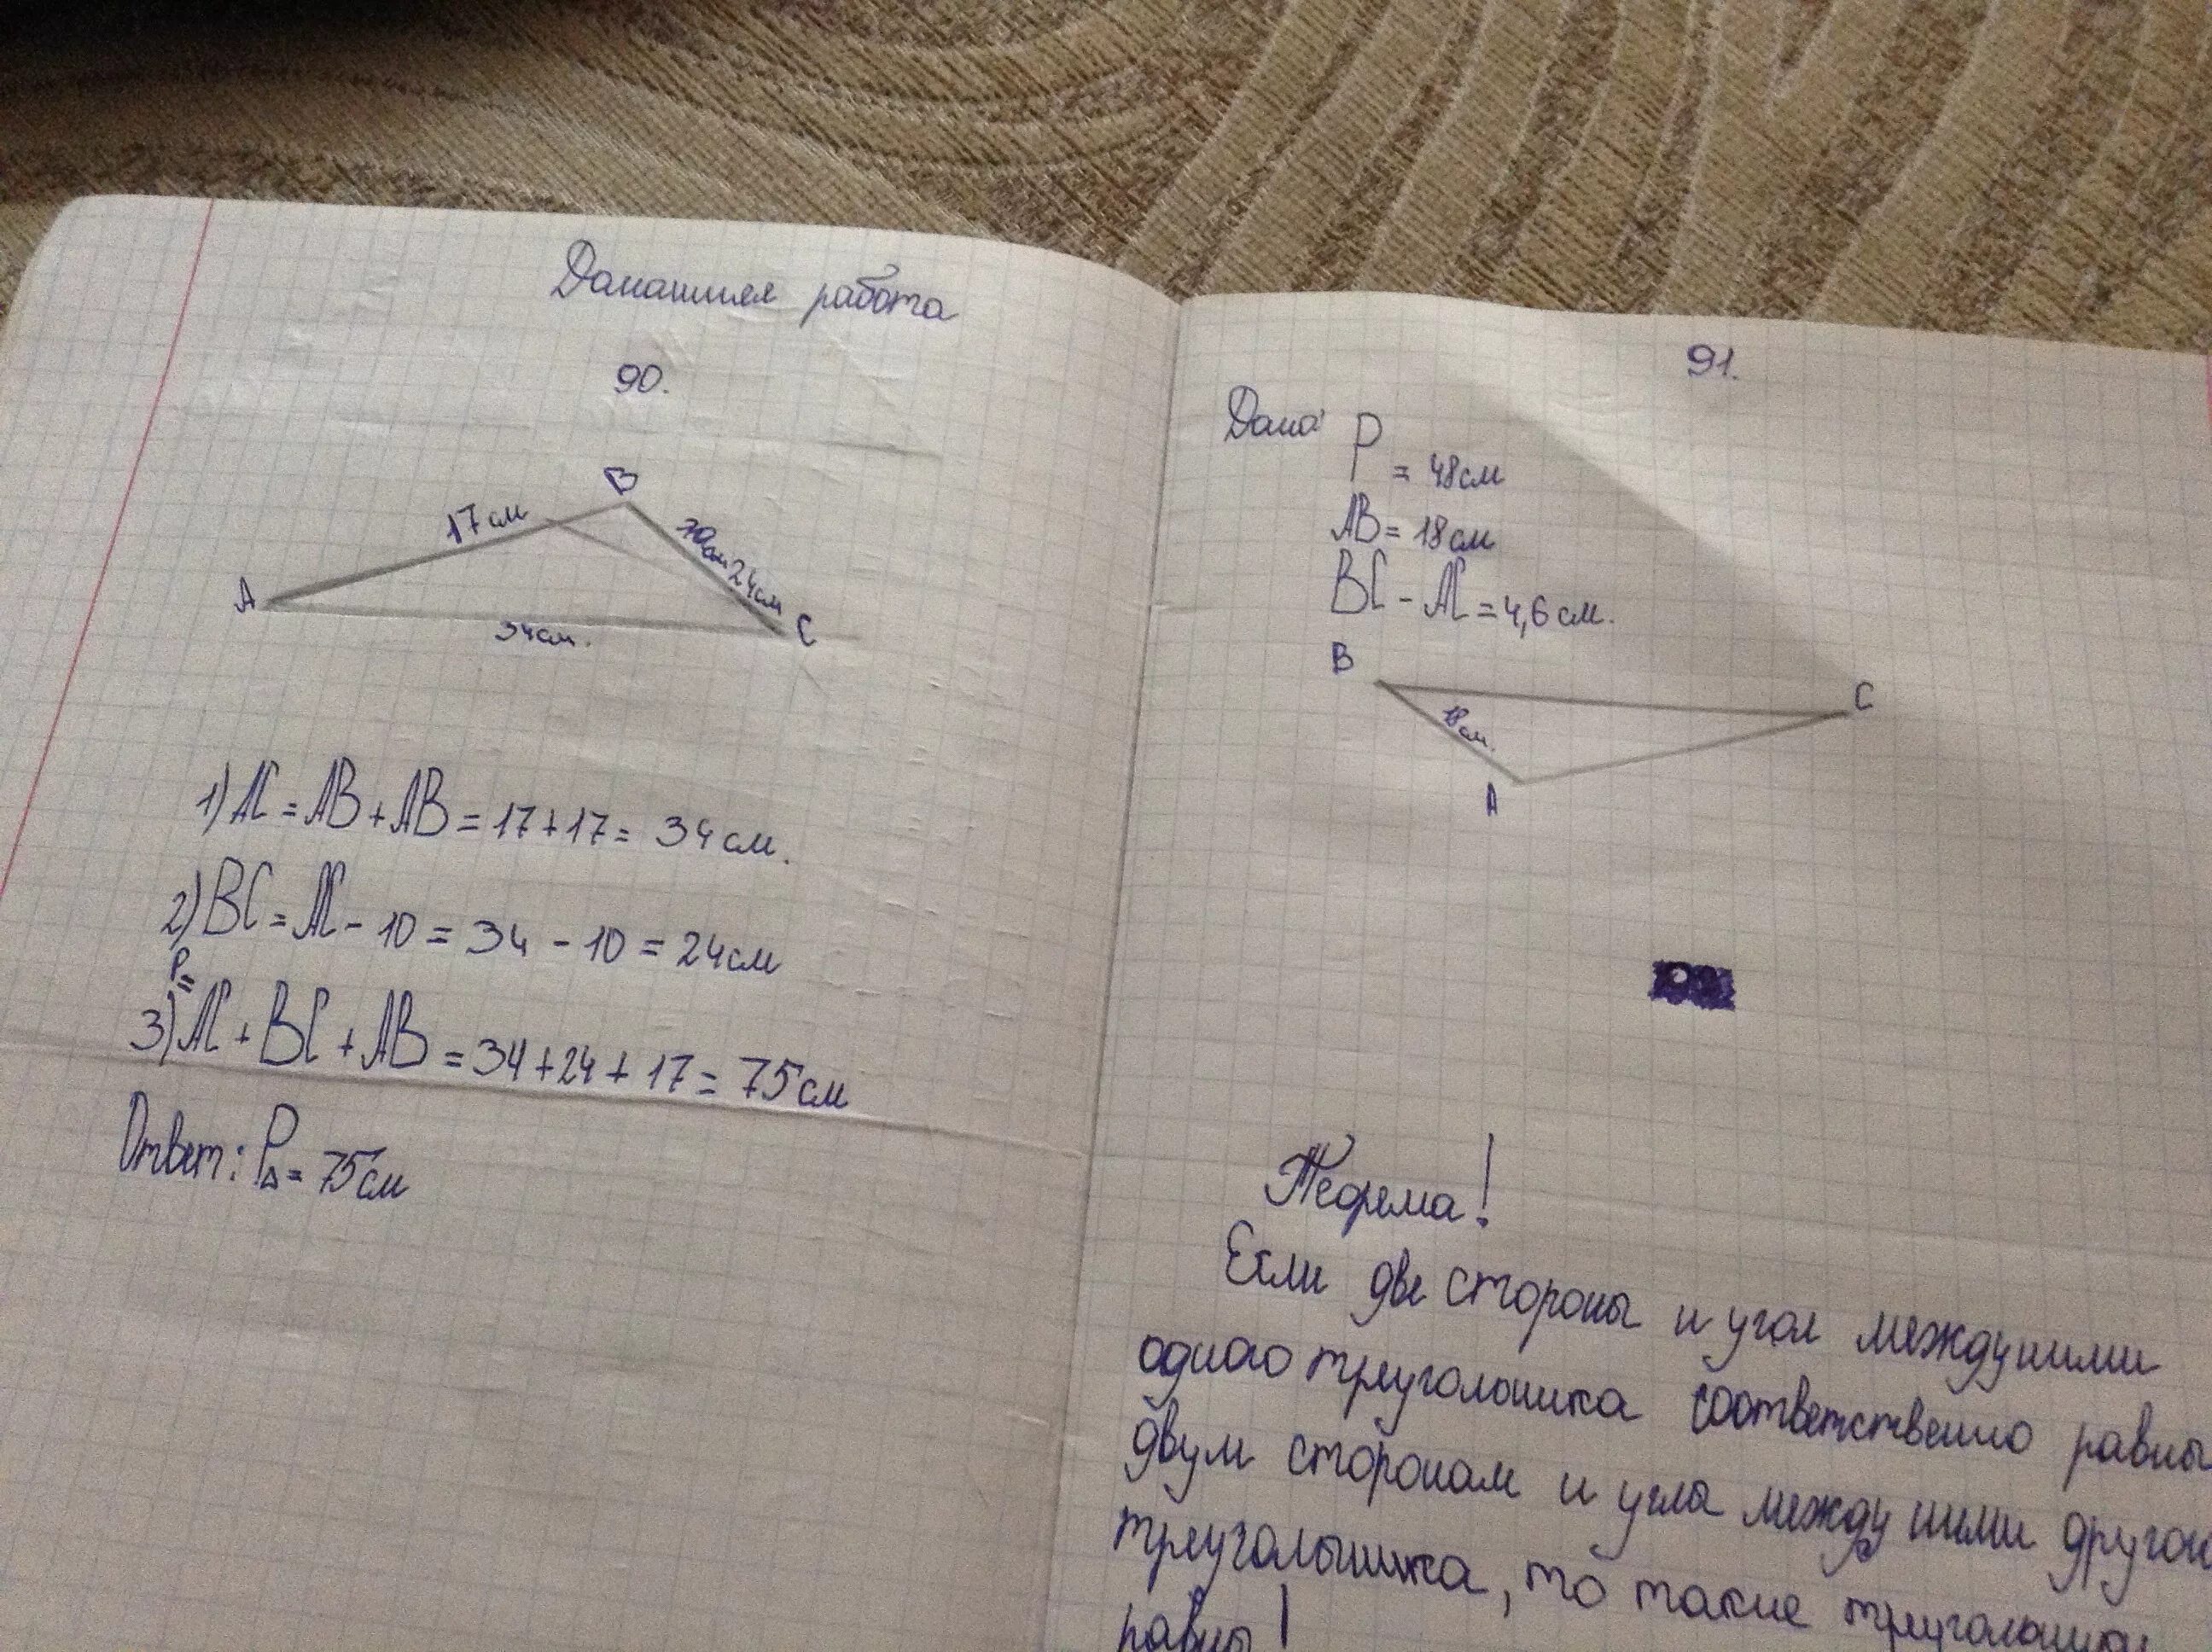 Домашняя работа
90.
B
17см
10см 24см
A
34см.
C
1) AC = AB + AB = 17 + 17 = 34 см.
2) BC = AC - 10 = 34 - 10 = 24см
P=
3) AC + BC + AB = 34 + 24 + 17 = 75см
Ответ: P△ = 75см
91.
Дано: P = 48см
AB = 18см
BC - AC = 4,6 см.
B
C
18см.
A
Теорема!
Если две стороны и угол между ними
одного треугольника соответственно равны
двум сторонам и углы между ними другого
треугольника, то такие треугольники
равны!